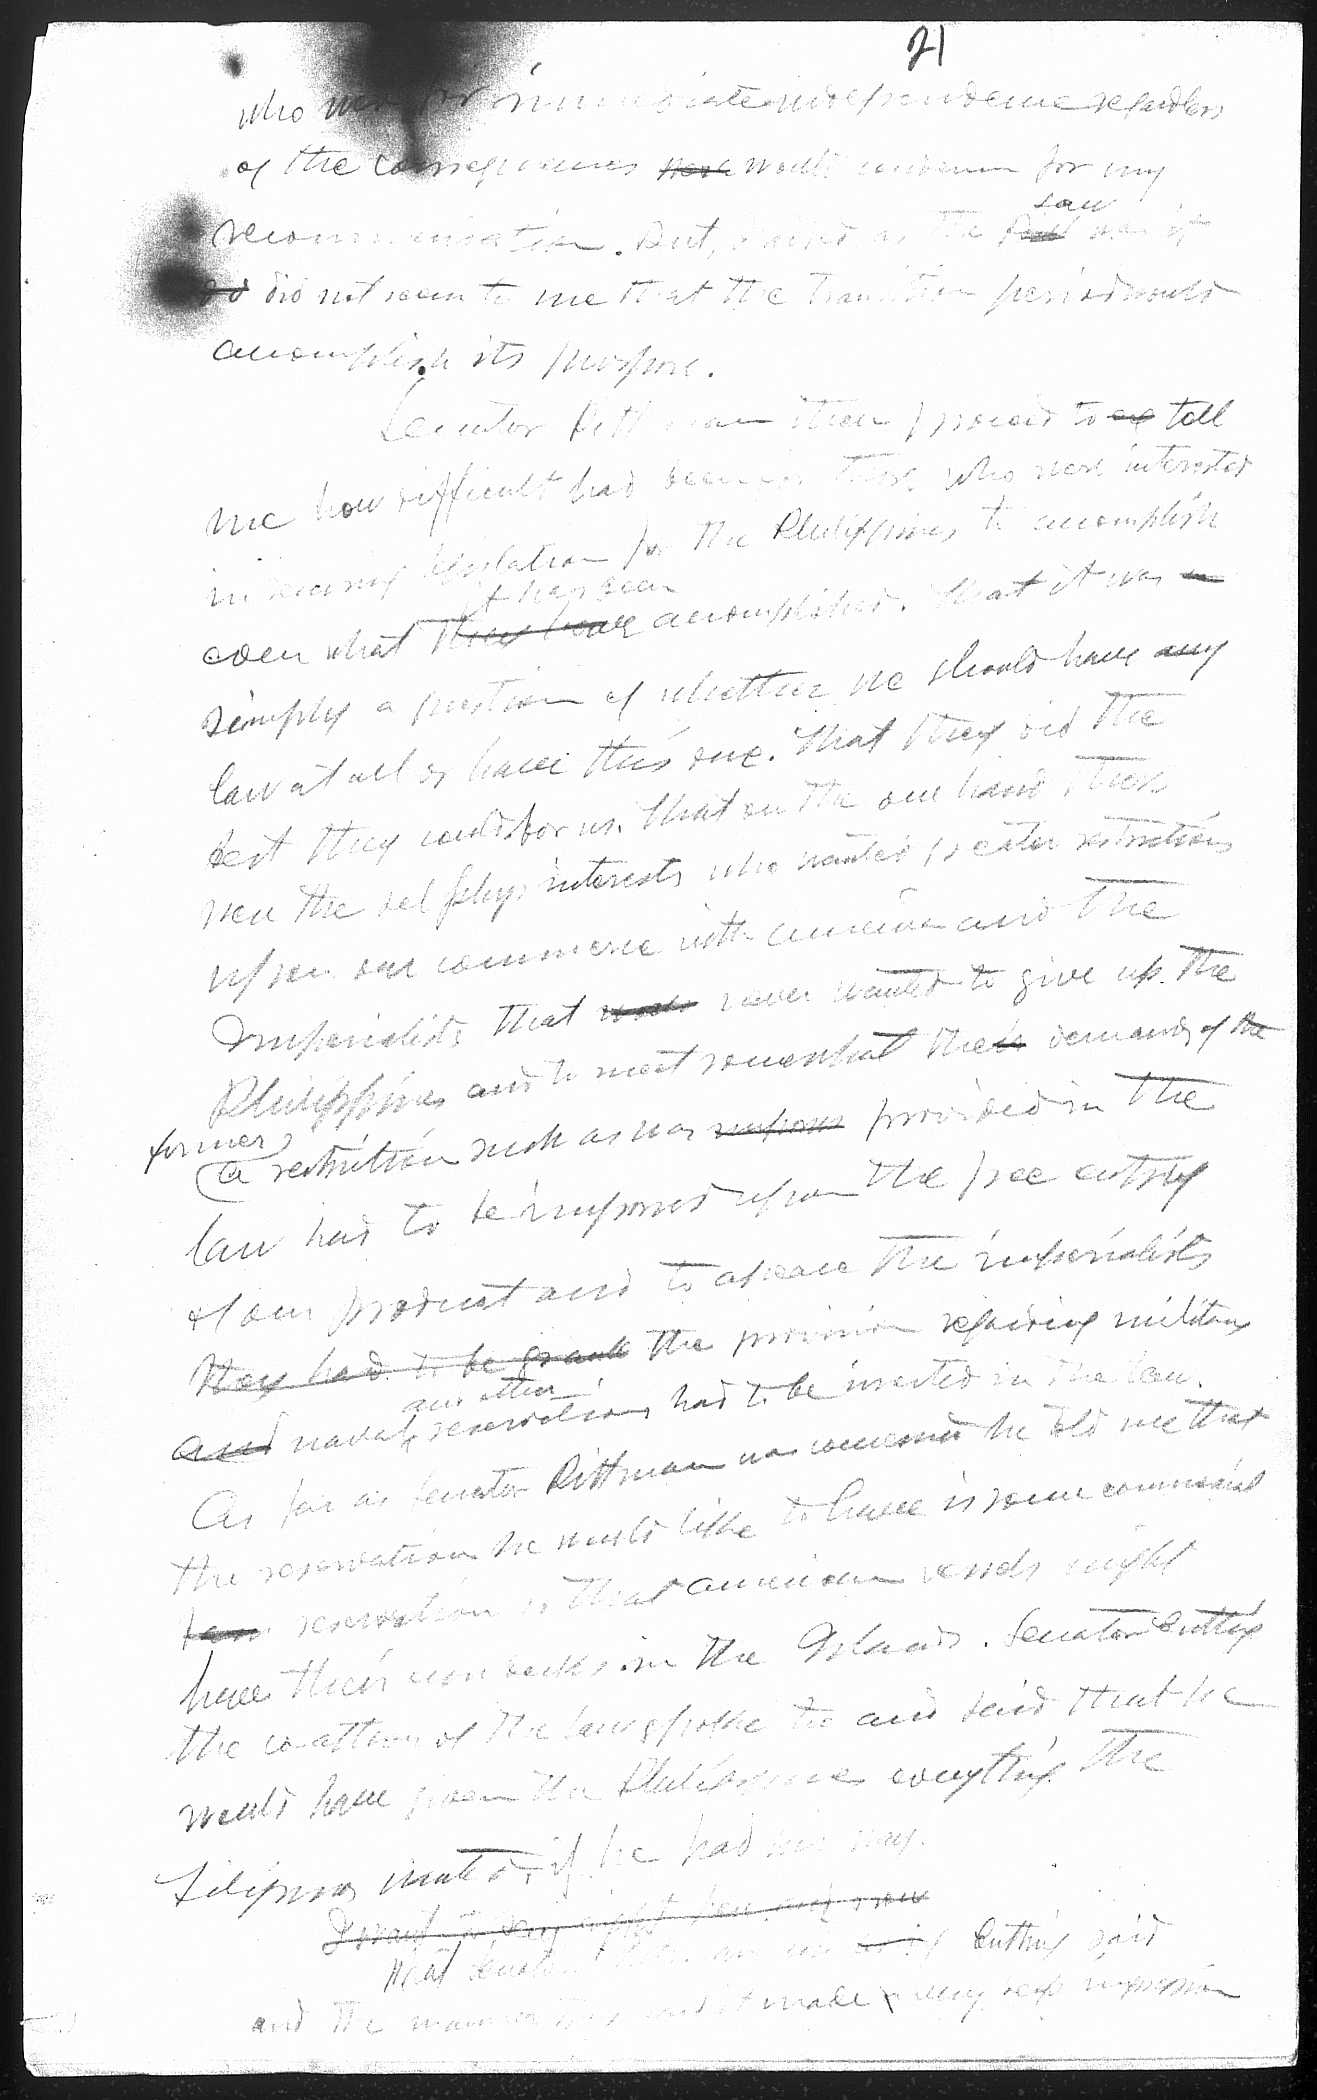 21
who were for immediate independence regardless
of the consequences were would condemn for my
recommendation. But, as the bill law was it
do did not seem to me that the transition period would
accomplish its purpose.
Senator Pittman then proceed to exp tell
me how difficult had been for those who were interested
in securing legislation for the Philippines to accomplish
even what they have it has been accomplished. That it was
simply a question of whether we should have any
law at all or have this one. That they did the
best they could for us. That on the one hand there
were the selfish interests who wanted greater restrictions
upon our commerce with America and the
Imperialists that never wanted to give up the
Philippines and to meet somewhat the demands of the
former a restriction such as was imposed provided in the
law had to be imposed upon the free entry
of our product and to appease the imperialists
they had to be grant the provision regarding military
and naval and other reservations had to be inserted in the law.
As far as Senator Pittman was concerned he told me that
the reservation he would like to have is some commercial
reservation so that American vessels might
have their own docks in the Islands. Senator Cutting
the coauthor of the law spoke too and said that he
would have given the Philippines everything the
Filipinos wanted if he had his way.
I want to say right here and now
What Senator Pittman and Cutting said
and the manner they said it made a very deep impression